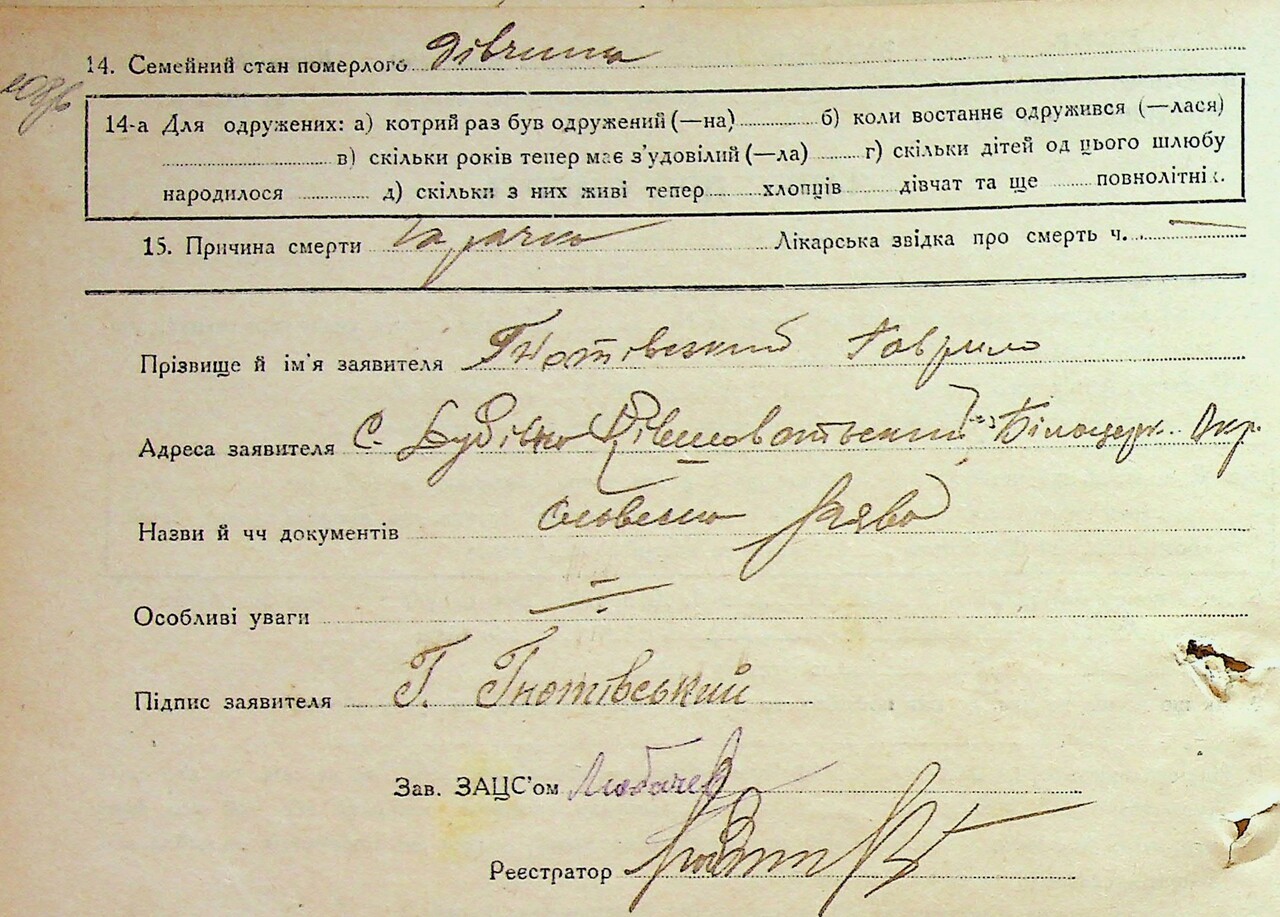 14. Семейний стан померлого дівчина
14-а Для одружених: а) котрий раз був одружений (—на) б) коли востаннє одружився (—лася)
в) скільки років тепер має з'удовілий (—ла) г) скільки дітей од цього шлюбу
народилося д) скільки з них живі тепер хлопців дівчат та ще повнолітніх.
15. Причина смерти гарячка Лікарська звідка про смерть ч. —
Прізвище й ім'я заявителя Гнотівський Гаврило
Адреса заявителя С. Білоцерк. Окр.
Назви й чч документів словесна заява
Особливі уваги
Підпис заявителя Г. Гнотівський
Зав. ЗАЦС'ом
Реєстратор